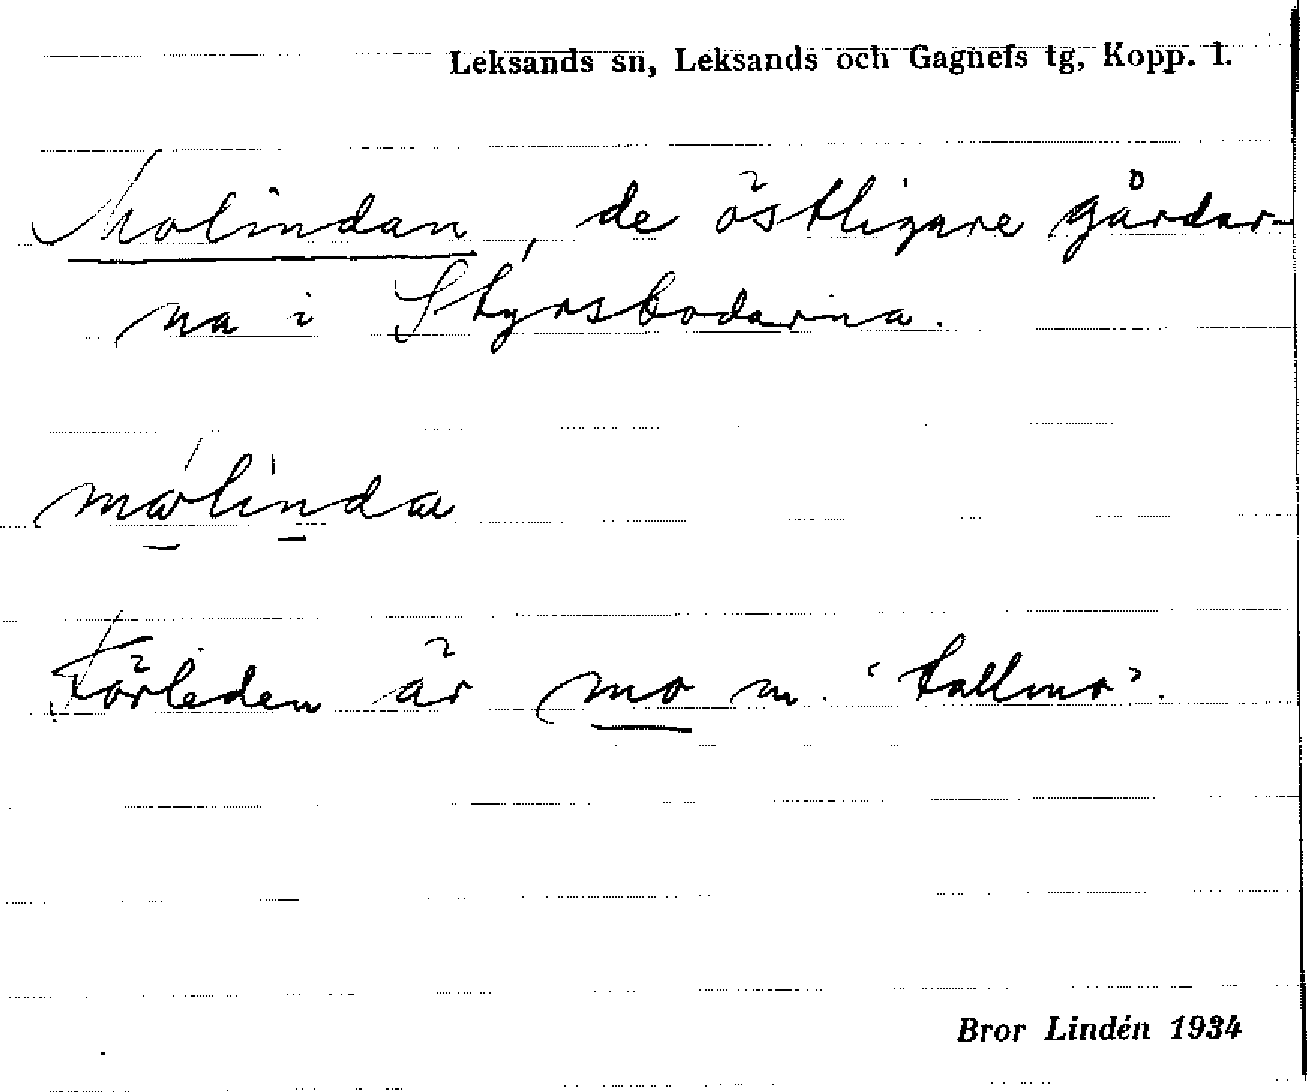 Leksands sn, Leksands och Gagnefs tg, Kopp. l.
Molindan, de östligare gårdar-
na i Styrsbodarna.
Förleden är mo m. 'tallmo'.
Bror Lindén 1934